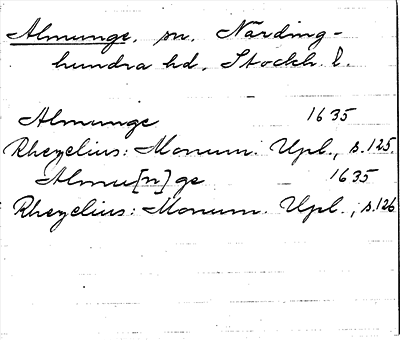 Almunge, sn, Närding-
hundra hd, Stockh. l.
Almunge 1635
Rhezelius: Monum. Upl., s. 125.
Almu[n]ge 1635
Rhezelius: Monum. Upl., s. 126